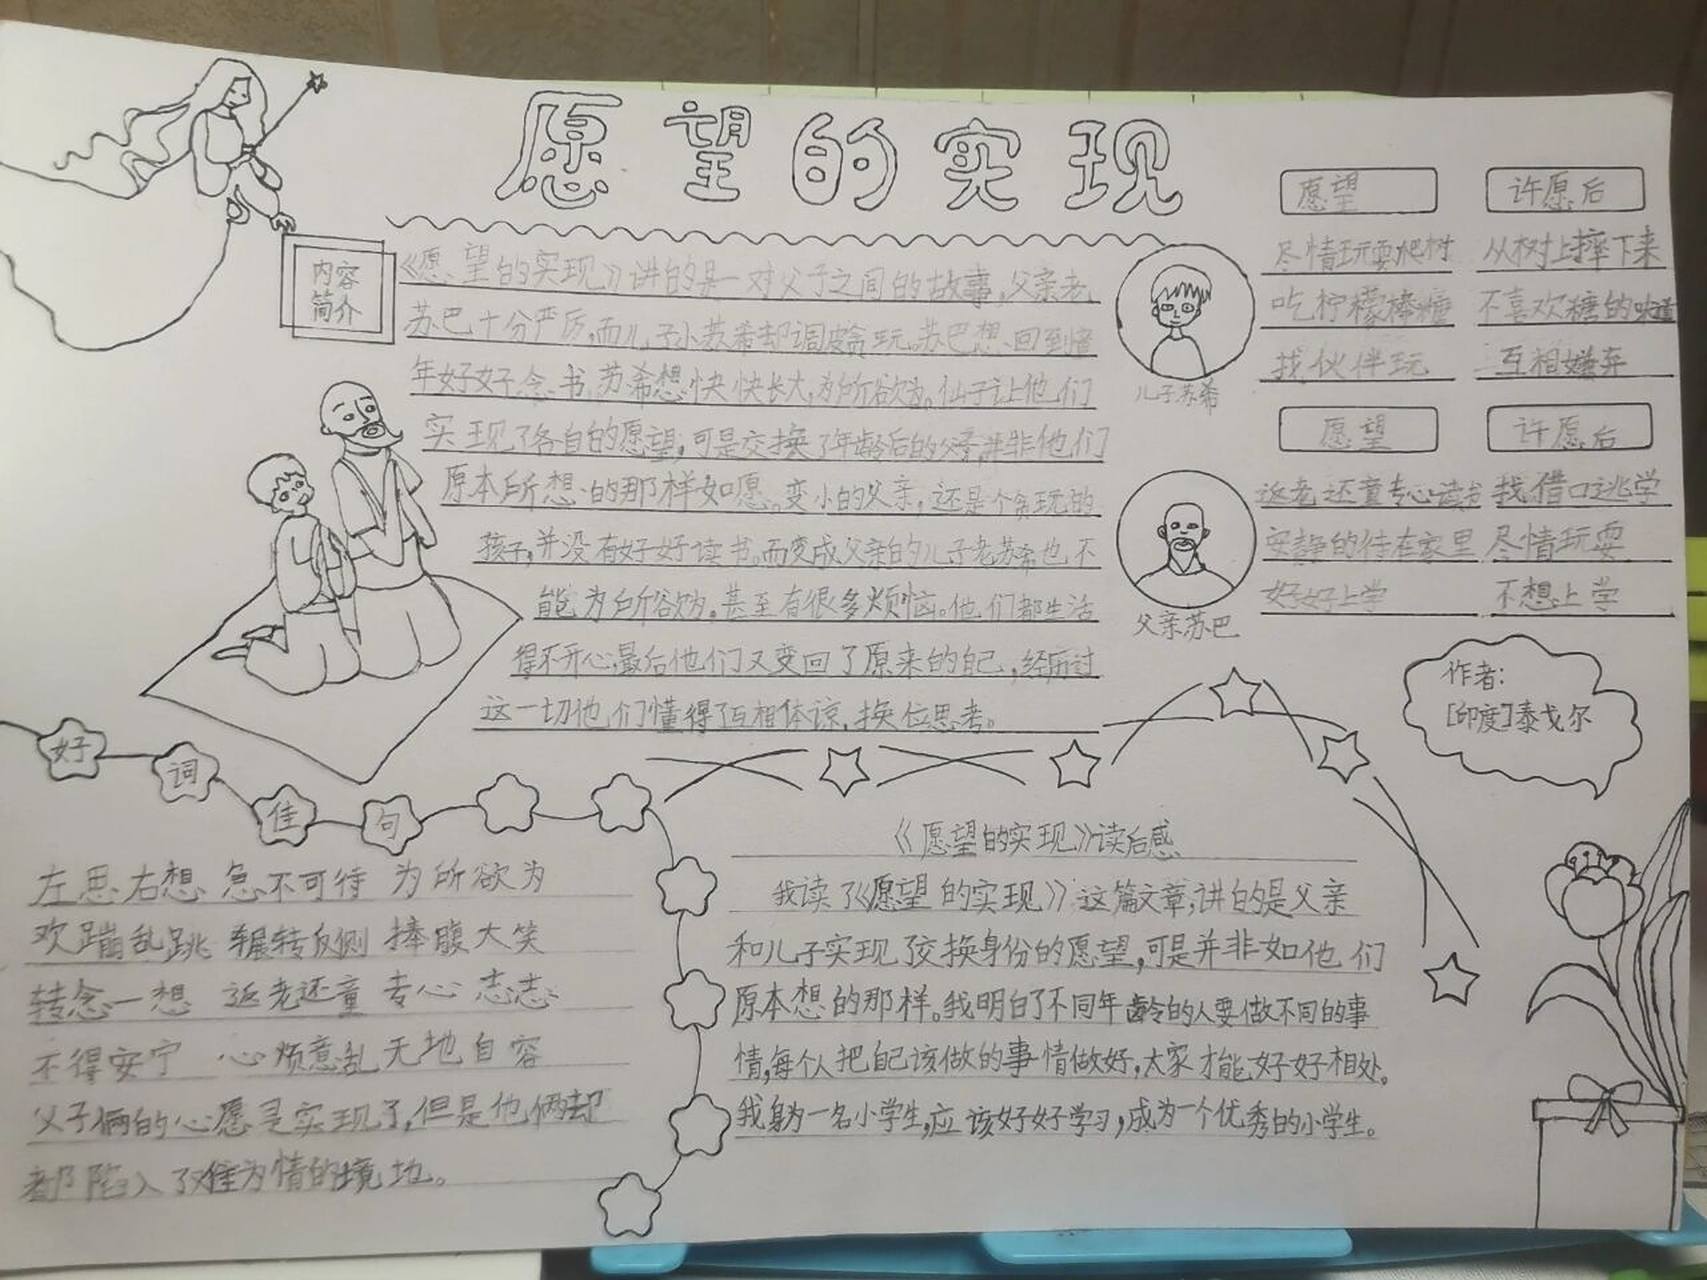 愿望的实现
内容
简介
《愿望的实现》讲的是一对父子之间的故事,父亲老
苏巴十分严厉,而儿子小苏希却调皮贪玩。苏巴想回到童
年好好念书,苏希想快快长大,为所欲为。仙子让他们
实现了各自的愿望,可是交换了年龄后的父子,并非他们
原本所想的那样如愿。变小的父亲,还是个贪玩的
孩子,并没有好好读书。而变成父亲的儿子老苏希也不
能为所欲为。甚至有很多烦恼。他们都生活
得不开心,最后他们又变回了原来的自己,经历过
这一切他们懂得了互相体谅,换位思考。
儿子苏希
愿望
许愿后
尽情玩耍爬树
从树上摔下来
吃柠檬棒糖
不喜欢糖的味道
找伙伴玩
互相嫌弃
父亲苏巴
愿望
许愿后
返老还童专心读书
找借口逃学
安静的待在家里
尽情玩耍
好好上学
不想上学
作者:
[印度]泰戈尔
好词佳句
左思右想 急不可待 为所欲为
欢蹦乱跳 辗转反侧 捧腹大笑
转念一想 返老还童 专心志志
不得安宁 心烦意乱 无地自容
父子俩的心愿是实现了,但是他俩却
都陷入了难为情的境地。
《愿望的实现》读后感
我读了《愿望的实现》这篇文章,讲的是父亲
和儿子实现了交换身份的愿望,可是并非如他们
原本想的那样。我明白了不同年龄的人要做不同的事
情,每个人把自己该做的事情做好,大家才能好好相处,
我身为一名小学生,应该好好学习,成为一个优秀的小学生。